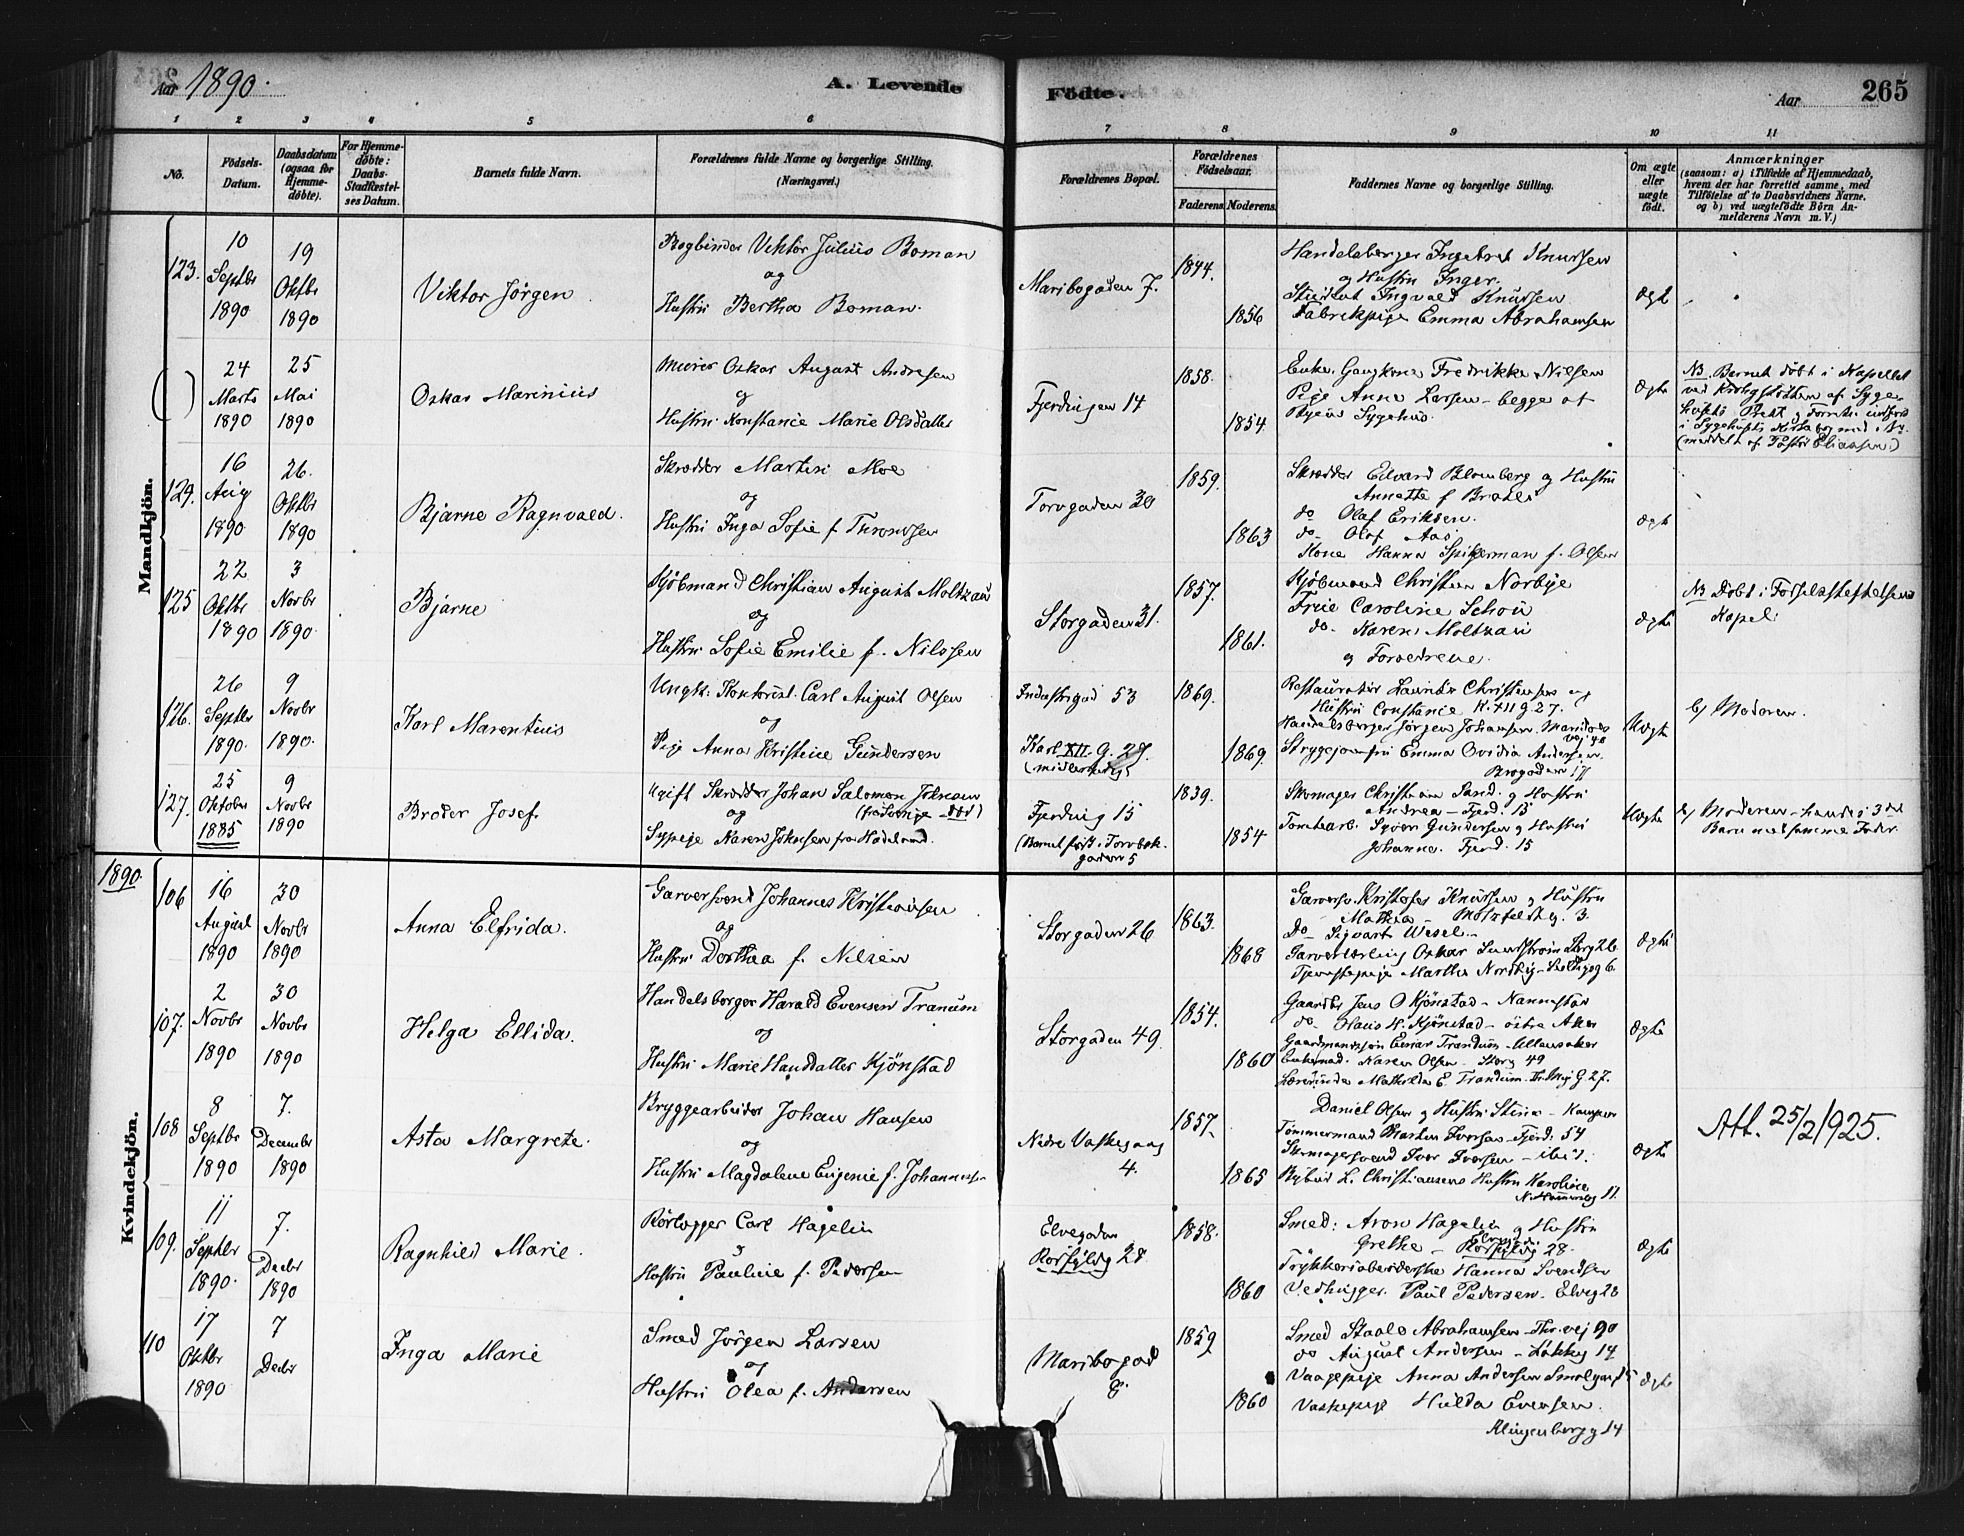 Aar 1890.
A. Levende
Födte.
Aar
265
1 2 3 4 5 6 7 8 9 10 11
No.
Födsels-
Datum.
Daabsdatum
(ogsaa for
Hjemme-
döbte).
For Hjemme-
döbte:
Daabs-
Stadfæstel-
ses Datum.
Barnets fulde Navn.
Forældrenes fulde Navne og borgerlige Stilling.
(Næringsvei.)
Forældrenes Bopæl.
Forældrenes
Födselsaar.
Faderens
Moderens
Faddernes Navne og borgerlige Stilling.
Om ægte
eller
uægte
födt.
Anmærkninger
(saasom: a) i Tilfælde af Hjemmedaab,
hvem der har forrettet samme, med
Tilföielse af to Daabsvidners Navne,
og b) ved uægtefödte Börn An-
melderens Navn m. V.)
Mandkjön.
123.
10
Septbr
1890
19
Oktbr
1890
Viktor Jörgen
Bogbinder Viktor Julius Boman
og
Hustru Bertha Boman.
Maribogaden 7.
1844.
1856
Handelsborger Ingebret Knudsen
og Hustru Inger.
Student Ingvald Knudsen
Fabrikpige Emma Abrahamsen
ægte
( )
24
Marts
1890
25
Mai
1890
Oskar Marinius
Murer Oskar August Andresen
og
Hustru Konstance Marie Olsdatter
Fjerdingen 14
1858.
1854
Enke Gangkone Fredrikke Nilsen
Pige Anna Larsen - begge af
Byens Sygehus.
ægte
NB. Barnet döbt i Kapellet
ved Krohgstötten af Syge-
husets Præst
(meddelt af Eliassen)
129.
16
Aug
1890
26.
Oktbr
1890
Bjarne Ragnvald.
Skrædder Martin Moe
og
Hustru Inga Sofie f. Throndsen
Torvgaden 30
1859.
1863
Skrædder Edvard Blomberg og Hustru
Annette f
do Olaf Eriksen.
do Olaf Aas
Kone Hanna Spikerman f. Olsen
ægte
125
22
Oktbr
1890
3
Novbr
1890.
Bjarne
Kjöbmand Christian August Moltzau
og
Hustru Sofie Emilie f. Nilssen
Storgaden 31.
1857.
1861.
Kjöbmand Christian Norbye
Frue Caroline Schou
do. Karen Moltzau
og Forældrene.
ægte
NB Döbt i Födselsstiftelsens
Kapel
126.
26
Septbr
1890.
9
Novbr
1890.
Karl Marentius
Ungk. Kontorist Carl August Olsen
og
Pige Anna Kristine Gundersen
Industrigad 53
Karl XII. G. 27.
(midlertidig)
1869.
1869.
Restauratör Lauritz Christensen og
Hustru Constance K. XII g 27.
Handelsborger Jörgen Johansen. Maridals
vei 40
Strygejomfru Emma Ovidia Andersen.
Brogaden 17
Uægte
b/ Moderen.
127.
25
Oktober
1885
9
Novbr
1890
Broder Josef.
Ugift Skrædder Johan Salomon Johnson
og (fra Sverige - död)
Sypige Karen Johnsen fra Hadeland.
Fjerding 15
(Barnet födt i Torvbak-
gaden 5
1839.
1854
Skomager Christian Sand. og Hustru
Andrea - Fjerd. 15
Tomtearb. Syver Gundersen og Hustru
Johanne. Fjerd. 15
Uægte
b/ Moderen - hendes 3die
Barn med samme Fader.
1890.
Kvindekjön.
106
16
August
1890
30
Novbr
1890
Anna Elfrida.
Garversvend Johannes Kristiansen
og
Hustru Dorthea f. Nilsen
Storgaden 26
1863.
1868
Garversv. Kristofer Knudsen og Hustru
Mathea - Motzfeldt g. 3.
Do Sigvart Wesel.
Garverlærling Oskar Sundström Storg 26.
Tjenestepige Marthe Nordby
ægte
107.
2
Novbr
1890
30
Novbr
1890
Helga Ellida.
Handelsborger Harald Evensen Tranum
og
Hustru Marie Hansdatter Kjönstad
Storgaden 49
1854.
1860
Gaardbr Jens O Kjönstad - Nannestad
do Hans H. Kjönstad - östre Aker
Gaardmandssön Einar Trandum - Ullensaker
Enkemad. Karen Olsen. Storg 49
Lærerinde Mathilda E. Trandum
ægte
108
8
Septbr
1890
7.
December
1890
Asta Margrete.
Bryggearbeider Johan Hansen
og
Hustru Magdalene Eugenie f. Johannessen
Nedre Vaskegang
4.
1857.
1865
Daniel Olsen og Hustru Stina - Kampen
Tömmermand Morten Iversen - Fjerd. 54
Skomagersvend Iver Iversen - ibid.
Bybud L. Christiansens Hustru Karoline
N. Hammersbg 11.
ægte
Att. 25/2 1925.
109.
11
Septbr
1890.
7.
Decbr
1890
Ragnhild Marie.
Rörlægger Carl Hagelin
og
Hustru Pauline f. Pedersen
Elvegaden
28
1858.
1860
Smed: Aron Hagelin og Hustru
Grethe - Elveg 28.
Trykkeriarbeiderske Hanna Svendsen
Vedhugger. Paul Pedersen. Elveg 28
ægte
110
17
Oktbr
1890
7
Decbr
Inga Marie
Smed Jörgen Larsen
og
Hustru Olea f. Andersen
Maribogad
8.
1859
1860
Smed Staale Abrahamsen - Thr.vej 90
do August Andersen - Lökkeg 14
Vaagepige Anna Andersen Smalgan 15
Vaskepige Hulda Evensen.
Klingenberg g 14
ægte